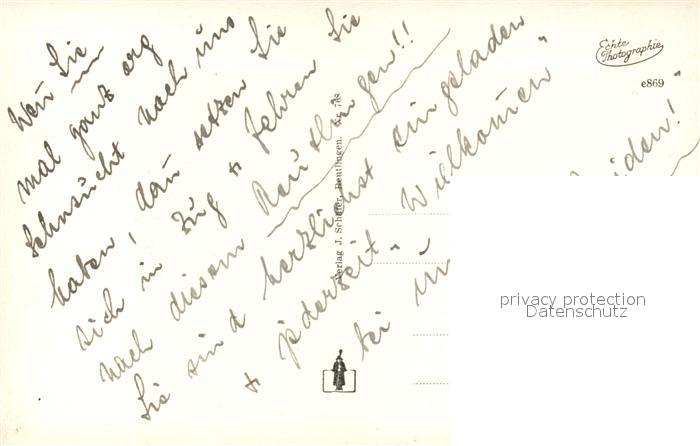 Wen̄ Sie
mal ganz arg
Sehnsucht nach uns
haben, dan̄ setzen Sie
sich in Zug + fahren Sie
nach diesem Reutlingen!!
Sie sind herzlichst eingeladen
+ jederzeit "Willkom̄en"
bei un
iden!
Echte
Photographie
e869
Verlag J. Schäfer, Reutlingen. Nr. 768
privacy protection
Datenschutz